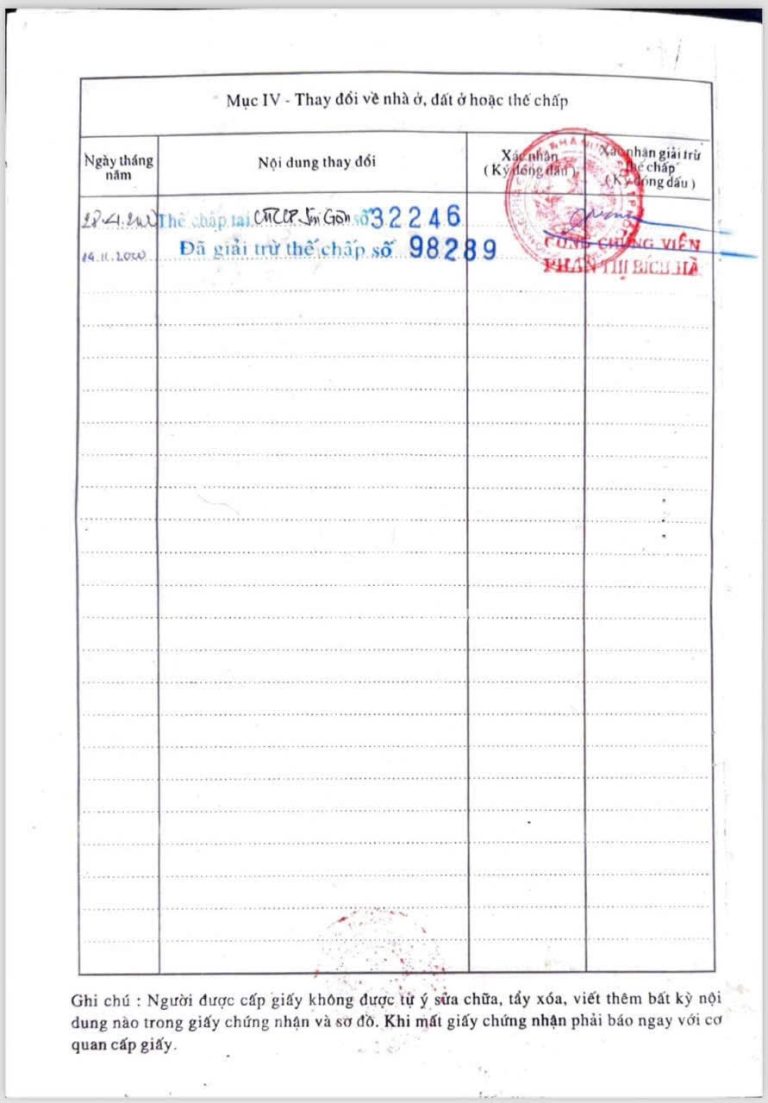 Mục IV - Thay đổi về nhà ở, đất ở hoặc thế chấp
Ngày tháng năm
Nội dung thay đổi
Xác nhận
( Ký đóng dấu )
Xác nhận giải trừ thế chấp
( Ký đóng dấu )
Thế chấp tại Sài Gòn số 32246
Đã giải trừ thế chấp số 98289
CÔNG CHỨNG VIÊN
PHAN THỊ BÍCH HÀ
Ghi chú : Người được cấp giấy không được tự ý sửa chữa, tẩy xóa, viết thêm bất kỳ nội
dung nào trong giấy chứng nhận và sơ đồ. Khi mất giấy chứng nhận phải báo ngay với cơ
quan cấp giấy.